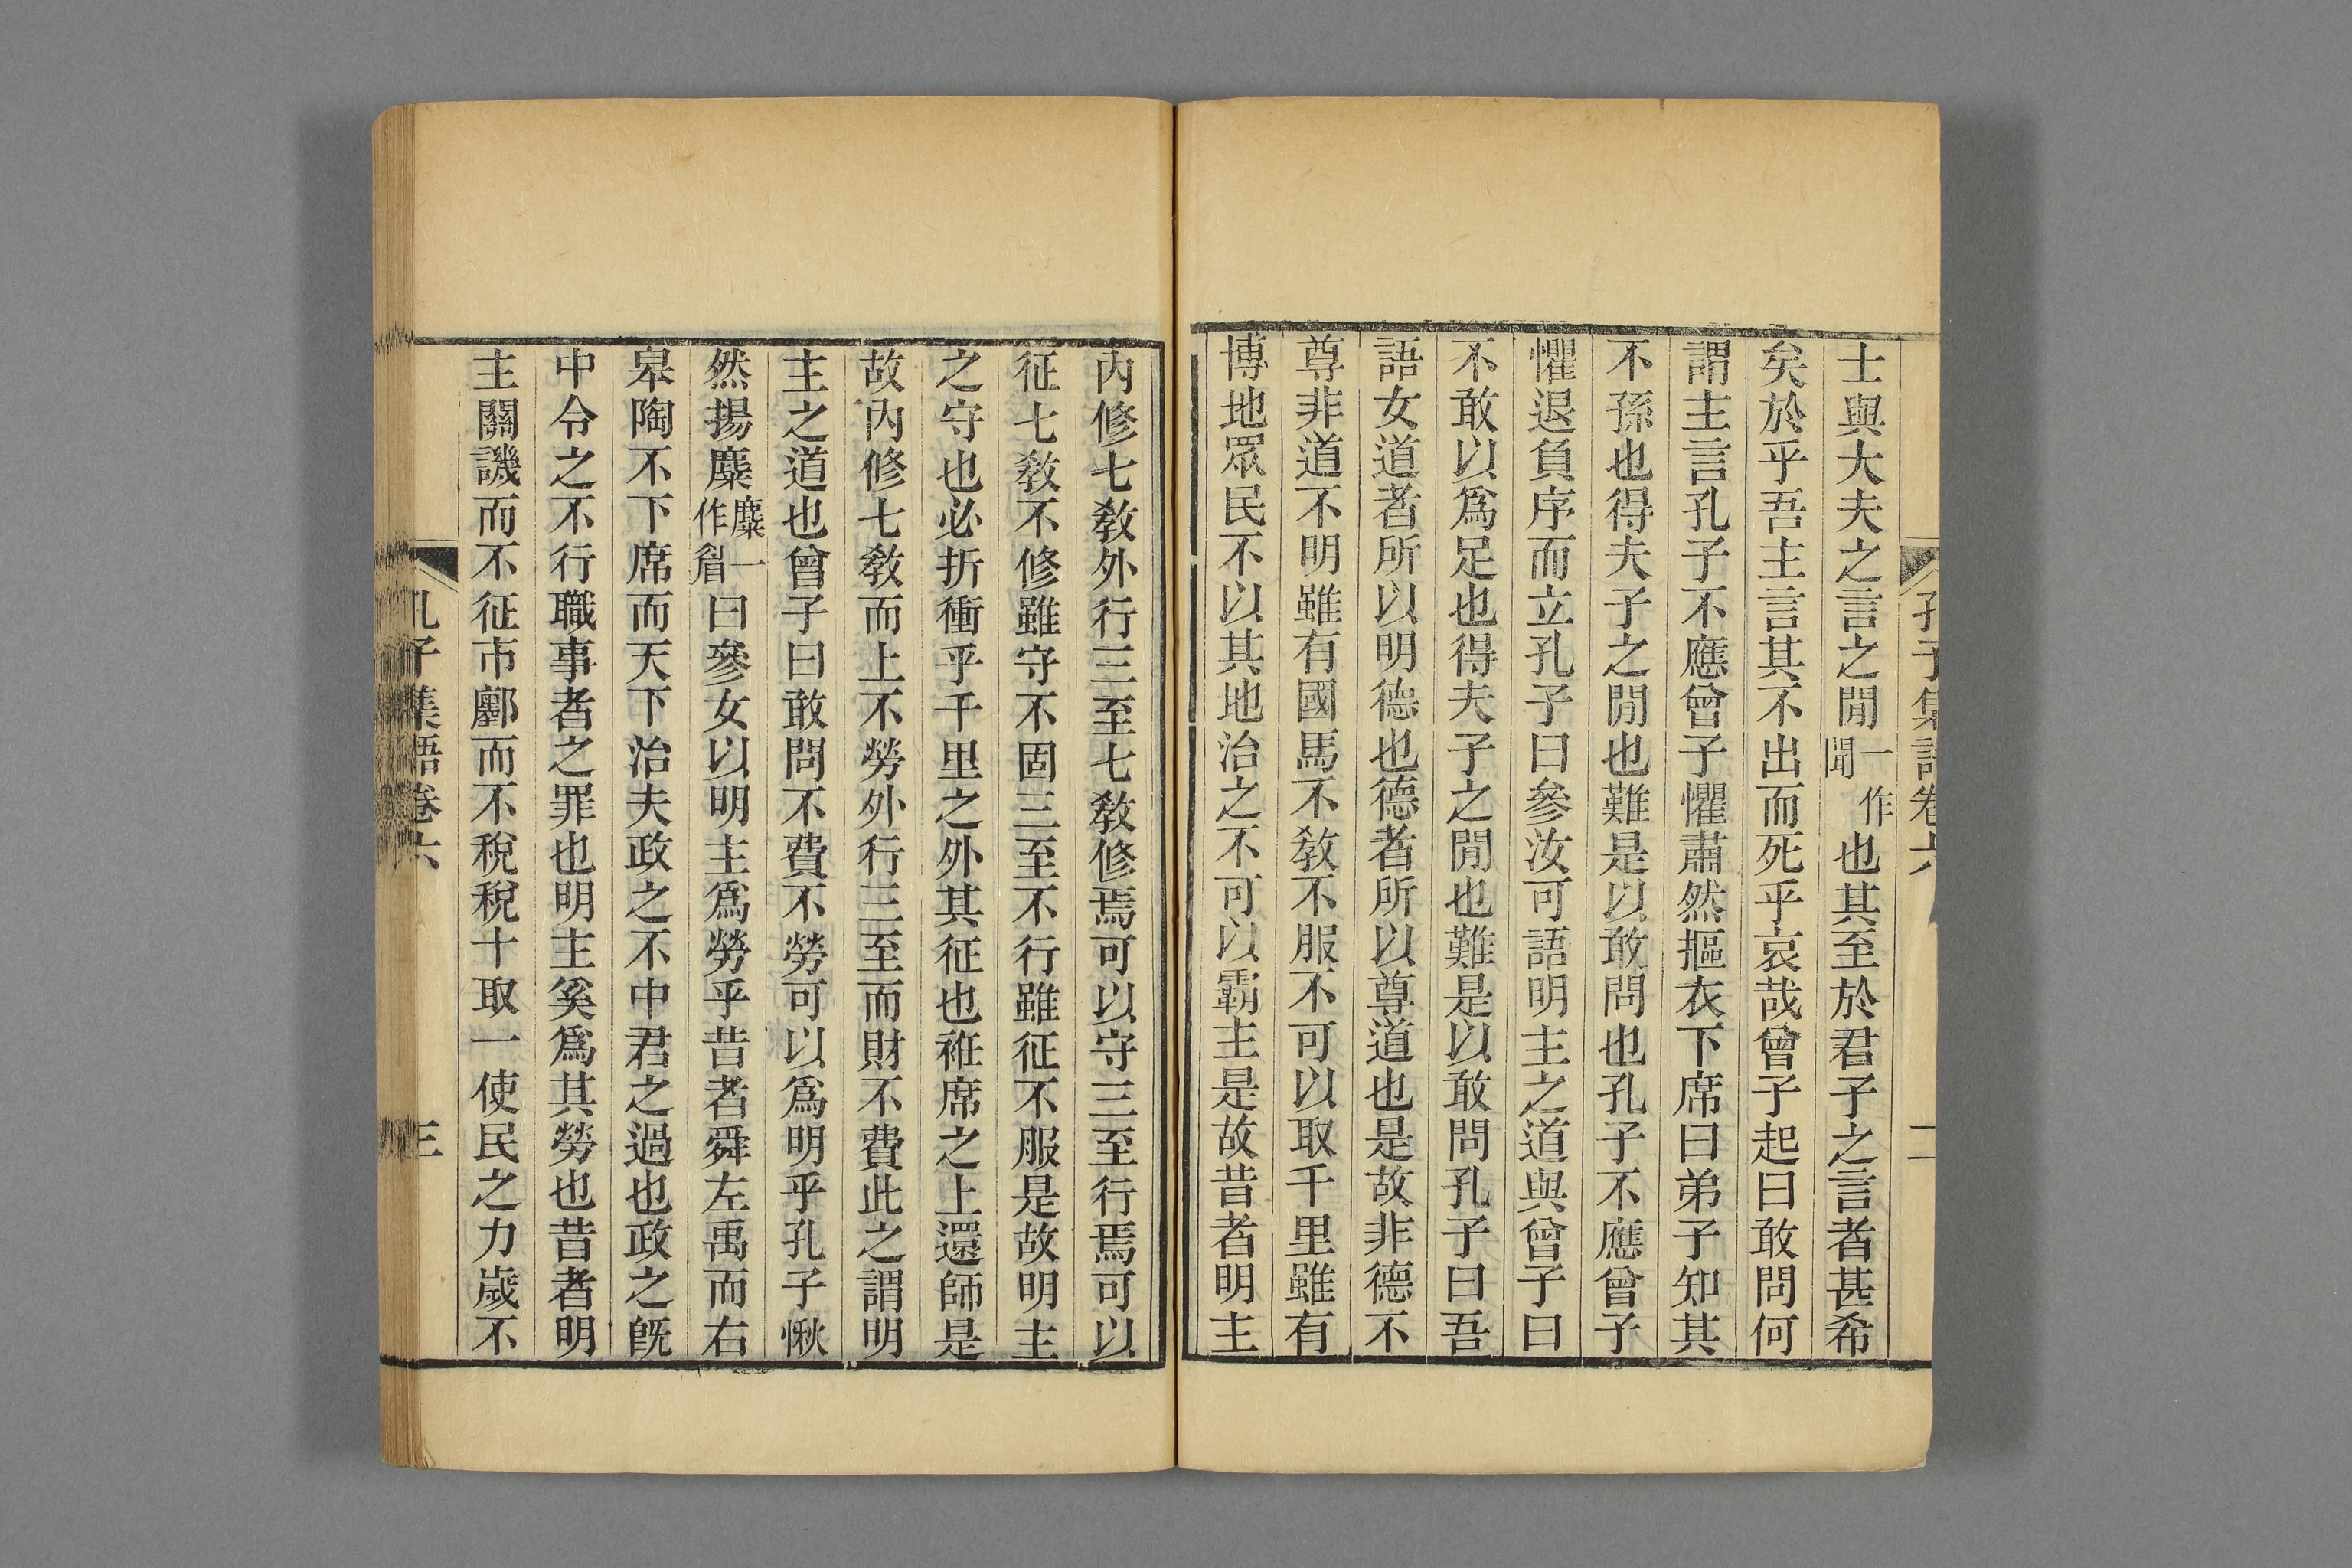 孔子集語卷六 二
士與大夫之言之閒一作聞也其至於君子之言者甚希
矣於乎吾主言其不出而死乎哀哉曾子起曰敢問何
謂主言孔子不應曾子懼肅然摳衣下席曰弟子知其
不孫也得夫子之閒也難是以敢問也孔子不應曾子
懼退負序而立孔子曰參汝可語明主之道與曾子曰
不敢以爲足也得夫子之閒也難是以敢問孔子曰吾
語女道者所以明德也德者所以尊道也是故非德不
尊非道不明雖有國馬不教不服不可以取千里雖有
博地眾民不以其地治之不可以霸主是故昔者明主
內修七教外行三至七教修焉可以守三至行焉可以
征七教不修雖守不固三至不行雖征不服是故明主
之守也必折衝乎千里之外其征也袵席之上還師是
故內修七教而上不勞外行三至而財不費此之謂明
主之道也曾子曰敢問不費不勞可以爲明乎孔子愀
然揚麋麋一作眉曰參女以明主爲勞乎昔者舜左禹而右
皋陶不下席而天下治夫政之不中君之過也政之旣
中令之不行職事者之罪也明主奚爲其勞也昔者明
主關譏而不征市鄽而不稅稅十取一使民之力歲不
孔子集語卷六 三